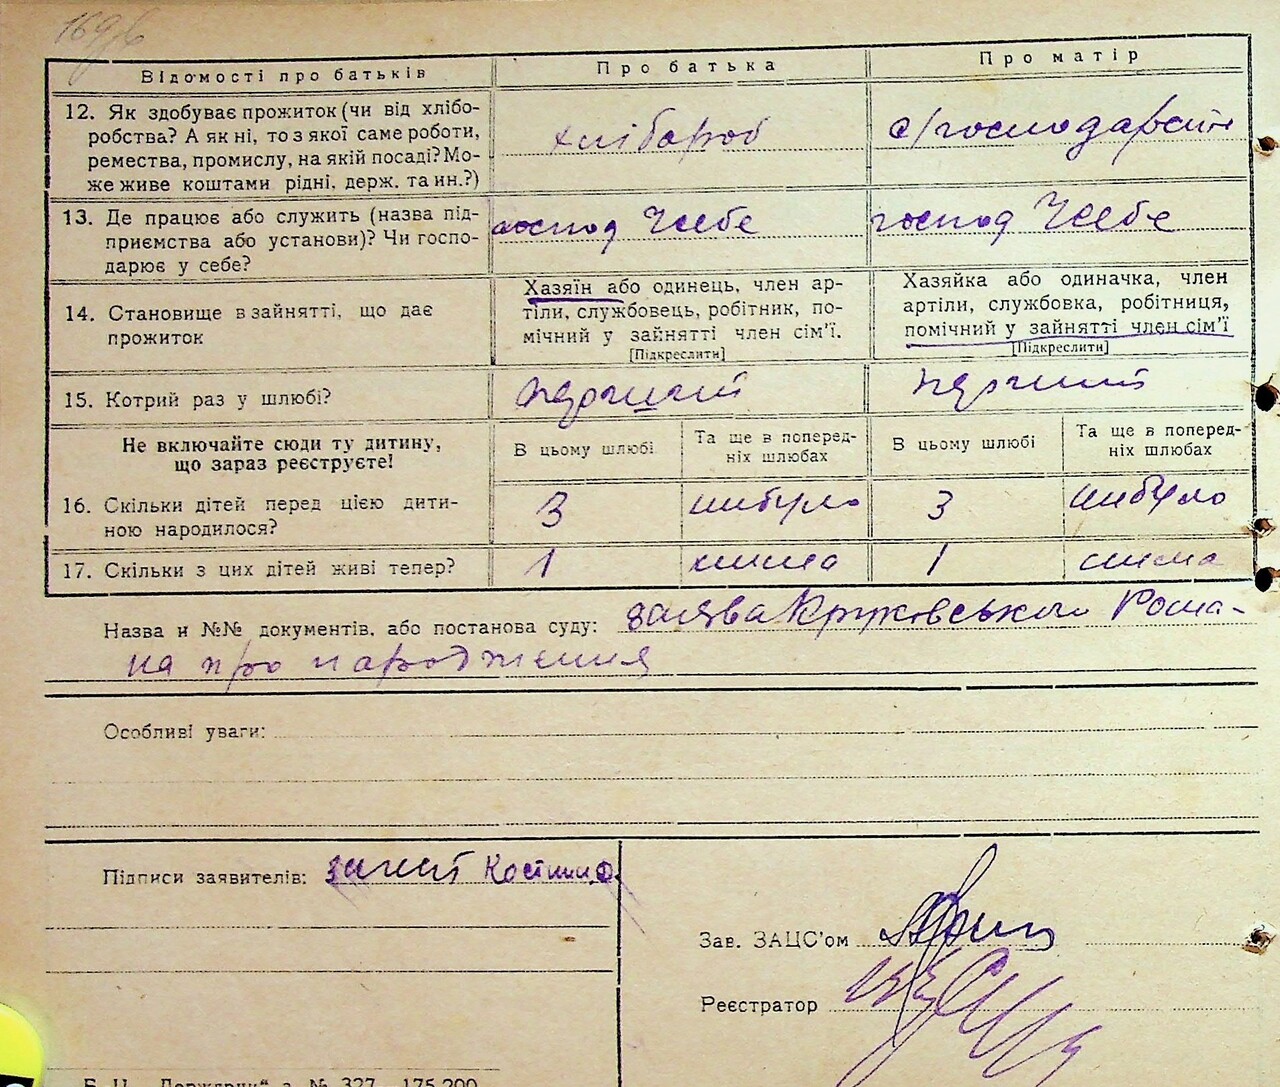 169 зв
Відомості про батьків
Про батька
Про матір
12. Як здобуває прожиток (чи від хлібо-
робства? А як ні, то з якої саме роботи,
ремества, промислу, на якій посаді? Мо-
же живе коштами рідні, держ. та ин.?)
хлібороб
с/господарств
13. Де працює або служить (назва під-
приємства або установи)? Чи госпо-
дарює у себе?
господ У себе
господ У себе
14. Становище в зайнятті, що дає
прожиток
Хазяїн або одинець, член ар-
тіли, службовець, робітник, по-
мічний у зайнятті член сім'ї.
[Підкреслити]
Хазяйка або одиначка, член
артіли, службовка, робітниця,
помічний у зайнятті член сім'ї
[Підкреслити]
15. Котрий раз у шлюбі?
перший
перший
Не включайте сюди ту дитину,
що зараз реєструєте!
В цьому шлюбі
Та ще в поперед-
ніх шлюбах
В цьому шлюбі
Та ще в поперед-
ніх шлюбах
16. Скільки дітей перед цією дити-
ною народилося?
3
небуло
3
небуло
17. Скільки з цих дітей живі тепер?
1
нема
1
нема
Назва и №№ документів, або постанова суду: заява Кружовського Рома-
на про народження
Особливі уваги:
Підписи заявителів:
Зав. ЗАЦС'ом
Реєстратор
Б. Ц. „Державник" з. № 327 175.200